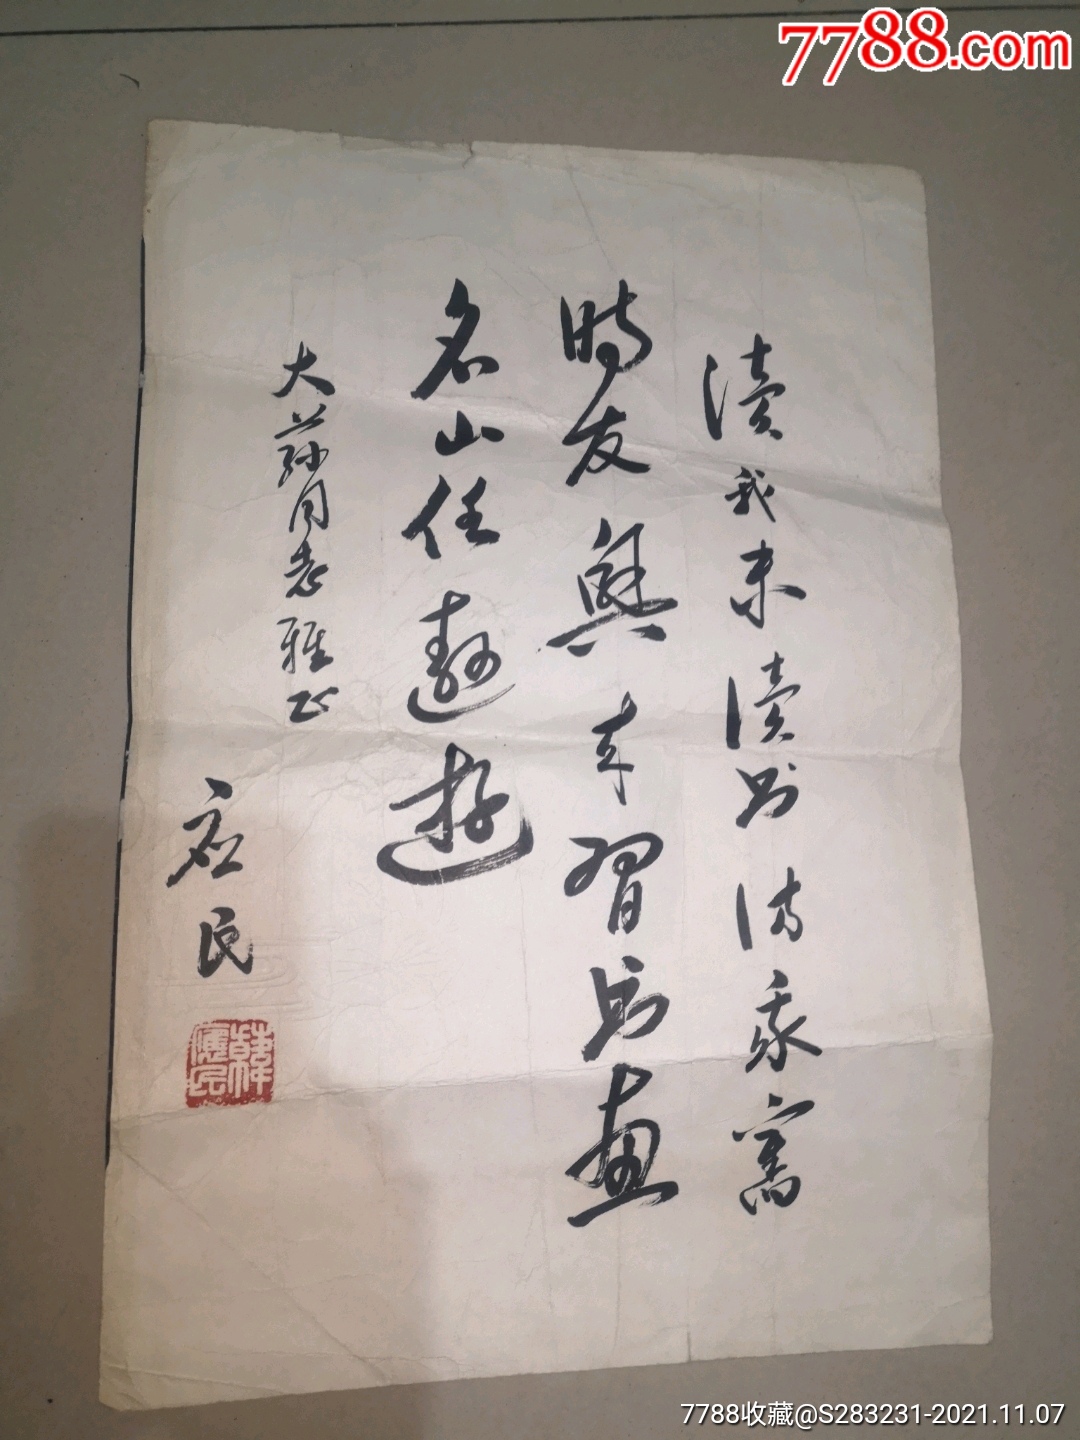 7788.com
读我未读书 访我旧
时友 兴来习书画
名山任遨游
大荪同志雅正
应民
韩应民
7788收藏@S283231-2021.11.07